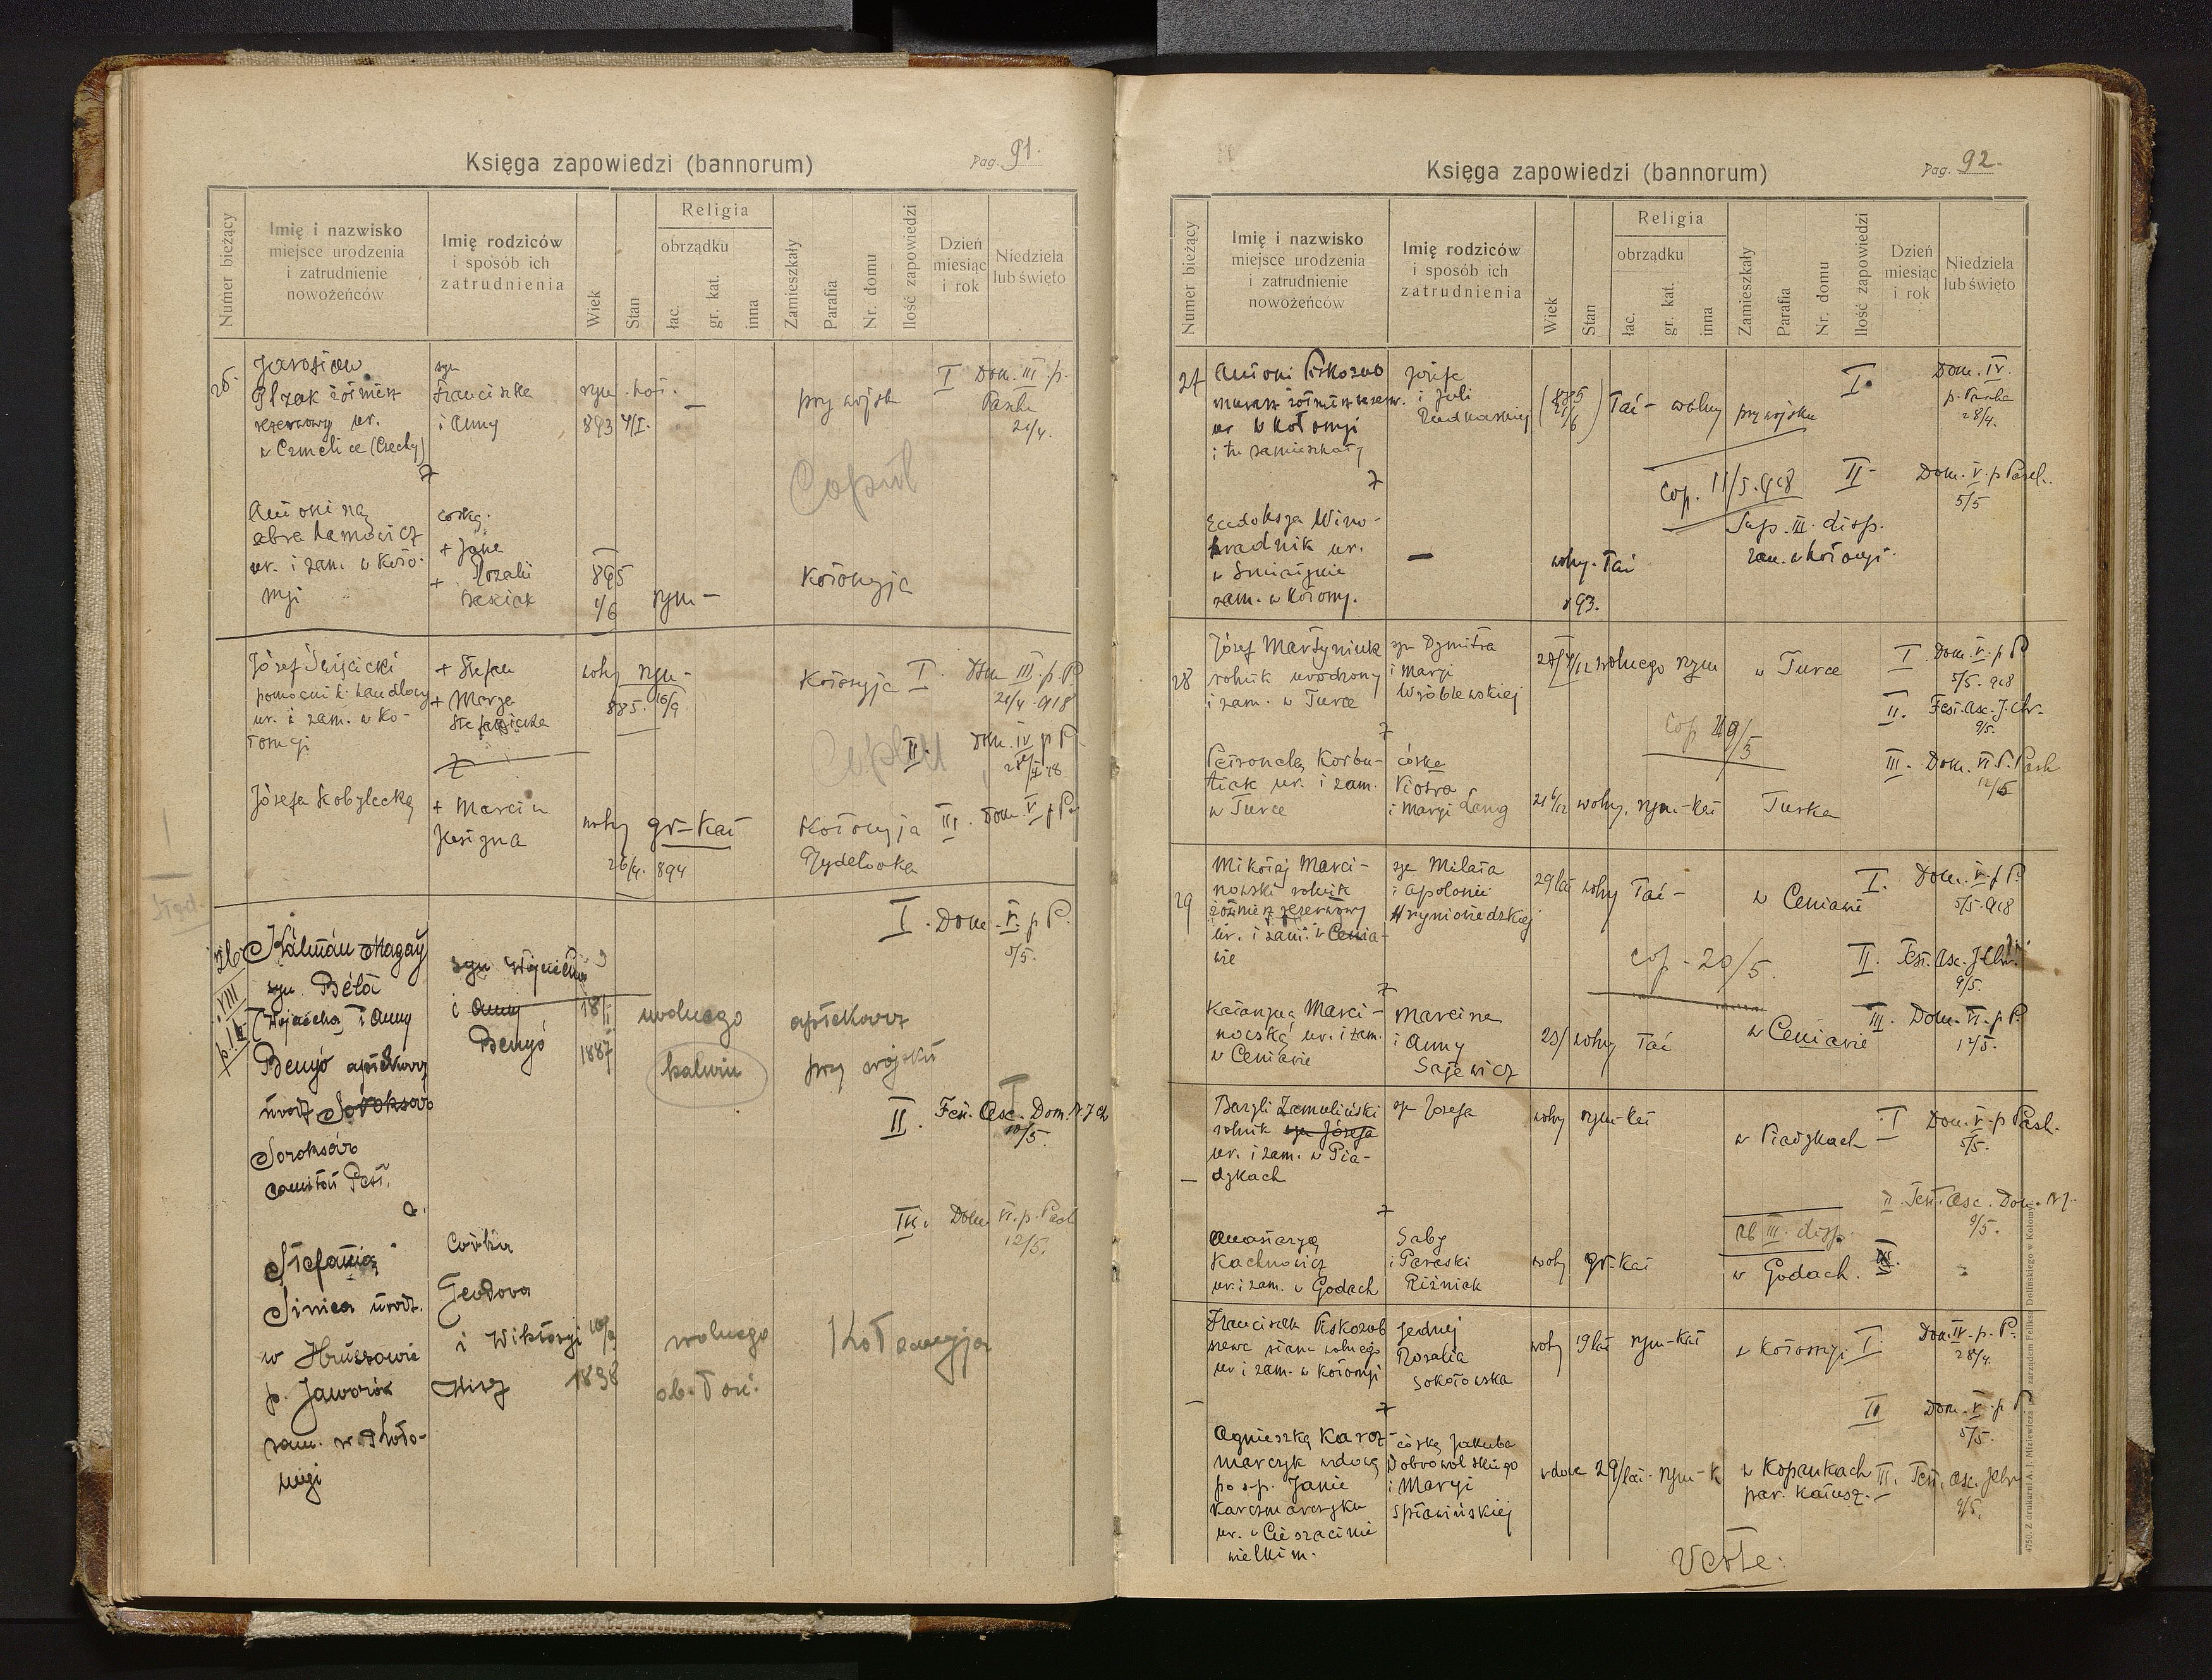 Księga zapowiedzi (bannorum)
Pag. 91.
Numer bieżący
Imię i nazwisko
miejsce urodzenia
i zatrudnienie
nowożeńców
Imię rodziców
i sposób ich
zatrudnienia
Wiek
Stan
Religia
obrządku
łac.
gr. kat.
inna
Zamieszkały
Parafia
Nr. domu
Ilość zapowiedzi
Dzień
miesiąc
i rok
Niedziela
lub święto
25.
Jarosław
żołnierz
rezerwowy ur.
(Czechy)
syn
Franciszka
i Anny
893 4/I.
przy wojsk
I Dom. III. p.
Pascha
21/4.
Copul
Antonina
Abrahamowicz
ur. i zam. w Koło-
myi
córka
+ Jana
+ Rozalii
895
4/6
rzym -
Kołomyja
Józef Święcicki
pomocnik handlowy
ur. i zam. w Ko-
łomyi
+ Stefan
+ Marya
wolny rzym -
885. 16/9
Kołomyja I. Dom III. p. P
21/4. 918
II. Dom. IV p P
Józefa Kobylecka
+ Marcin
wolny gr-kat
26/4. 894
Kołomyja III. Dom. V p P
26
Kálmán Magay
syn Béla
(Wojciecha i Anny
Benyó aptekarz
urodz Soroksár
Soroksár
comitat Pest.
syn Wojciecha
i Anny
Benyó
18/I
1887
wolnego
kalwin
aptekarz
przy wojsku
I. Dom. V. p P.
5/5.
II. Fest. Asc. Dom. N. J Ch
10/5.
III. Dom VI. p. Pasch
12/5.
Stefania
Sinica urodz.
w Hruszowie
p. Jaworów
zam. w Koło-
myi
Córka
Teodora
i Wiktoryi
1898
wolnego
ob. łać.
Kołomyja
Księga zapowiedzi (bannorum)
Pag. 92.
Numer bieżący
Imię i nazwisko
miejsce urodzenia
i zatrudnienie
nowożeńców
Imię rodziców
i sposób ich
zatrudnienia
Wiek
Stan
Religia
obrządku
łac.
gr. kat.
inna
Zamieszkały
Parafia
Nr. domu
Ilość zapowiedzi
Dzień
miesiąc
i rok
Niedziela
lub święto
27
Antoni Piskozub
murarz żołnierz rezerw.
ur w Kołomyi
i tu zamieszkały
Józefa
i Juli
Rudkowskiej
łać - wolny
przy wojsku
I.
Dom. IV.
p. Pascha
28/4.
cop. 11/5. 918
II -
Dom. V. p Pasch.
5/5
Sup. III. disp.
Eudoksya Wino-
hradnik ur.
w Śniatynie
zam. w Kołomy.
-
wolny. łać
893.
zam. w Kołomyi.
28
Józef Martyniuk
rolnik urodzony
i zam. w Turce
syn Dymitra
i Maryi
Wróblewskiej
wolnego rzym
w Turce
I. Dom. V. p P
5/5. 918
II. Fest. Asc. J. Chr.
9/5.
III. Dom. VI. P. Pasch
12/5
Petronela Korbu-
tiak ur. i zam.
w Turce
córka
Piotra
i Maryi Lang
wolny, rzym-kat
Turka
29
Mikołaj Marci-
nowski rolnik
żołnierz rezerwowy
ur. i zam. w Cenia-
wie
syn Michała
i Apolonii
Hryniowieckiej
29 lat wolny łać -
w Ceniawie
I. Dom. V. p P.
5/5. 918
cop - 20/5.
II. Fest. Asc. J Chr.
9/5.
III. Dom. VI. p P.
12/5.
Katarzyna Marci-
nowska ur. i zam.
w Ceniawie
Marcina
i Anny
Sajewicz
wolny łać
w Ceniawie
Bazyli Zamuliński
rolnik syn Józefa
ur. i zam. w Pia-
dykach
syn Józefa
wolny rzym-kat
w Piadykach
I Dom. V. p Pasch.
5/5.
II. Fest. Asc. Dom. N J.
9/5.
ab III. disp.
Anastazya
Kachnowicz
ur. i zam. w Godach
Saby
i Paraski
Piźniak
wolny gr-kat
w Godach.
Franciszek Piskozub
szewc stanu wolnego
ur i zam. w Kołomyi
Jędrzej
Rozalia
Sokołowska
wolny 19 lat rzym-kat
w Kołomyi I.
Dom IV. p. P.
28/4.
II Dom. V. p P
5/5.
Agnieszka Karcz-
marczyk wdowa
po s.p. Janie
Karczmarczyku
ur. w Cieszacinie
wielkim.
córka Jakuba
Dobrowolskiego
i Maryi
Spławińskiej
wdowa 29/lat - rzym-k
w Kopankach
par. Kałusz. -
III. Fest. Asc. J Chr
9/5.
Verte.